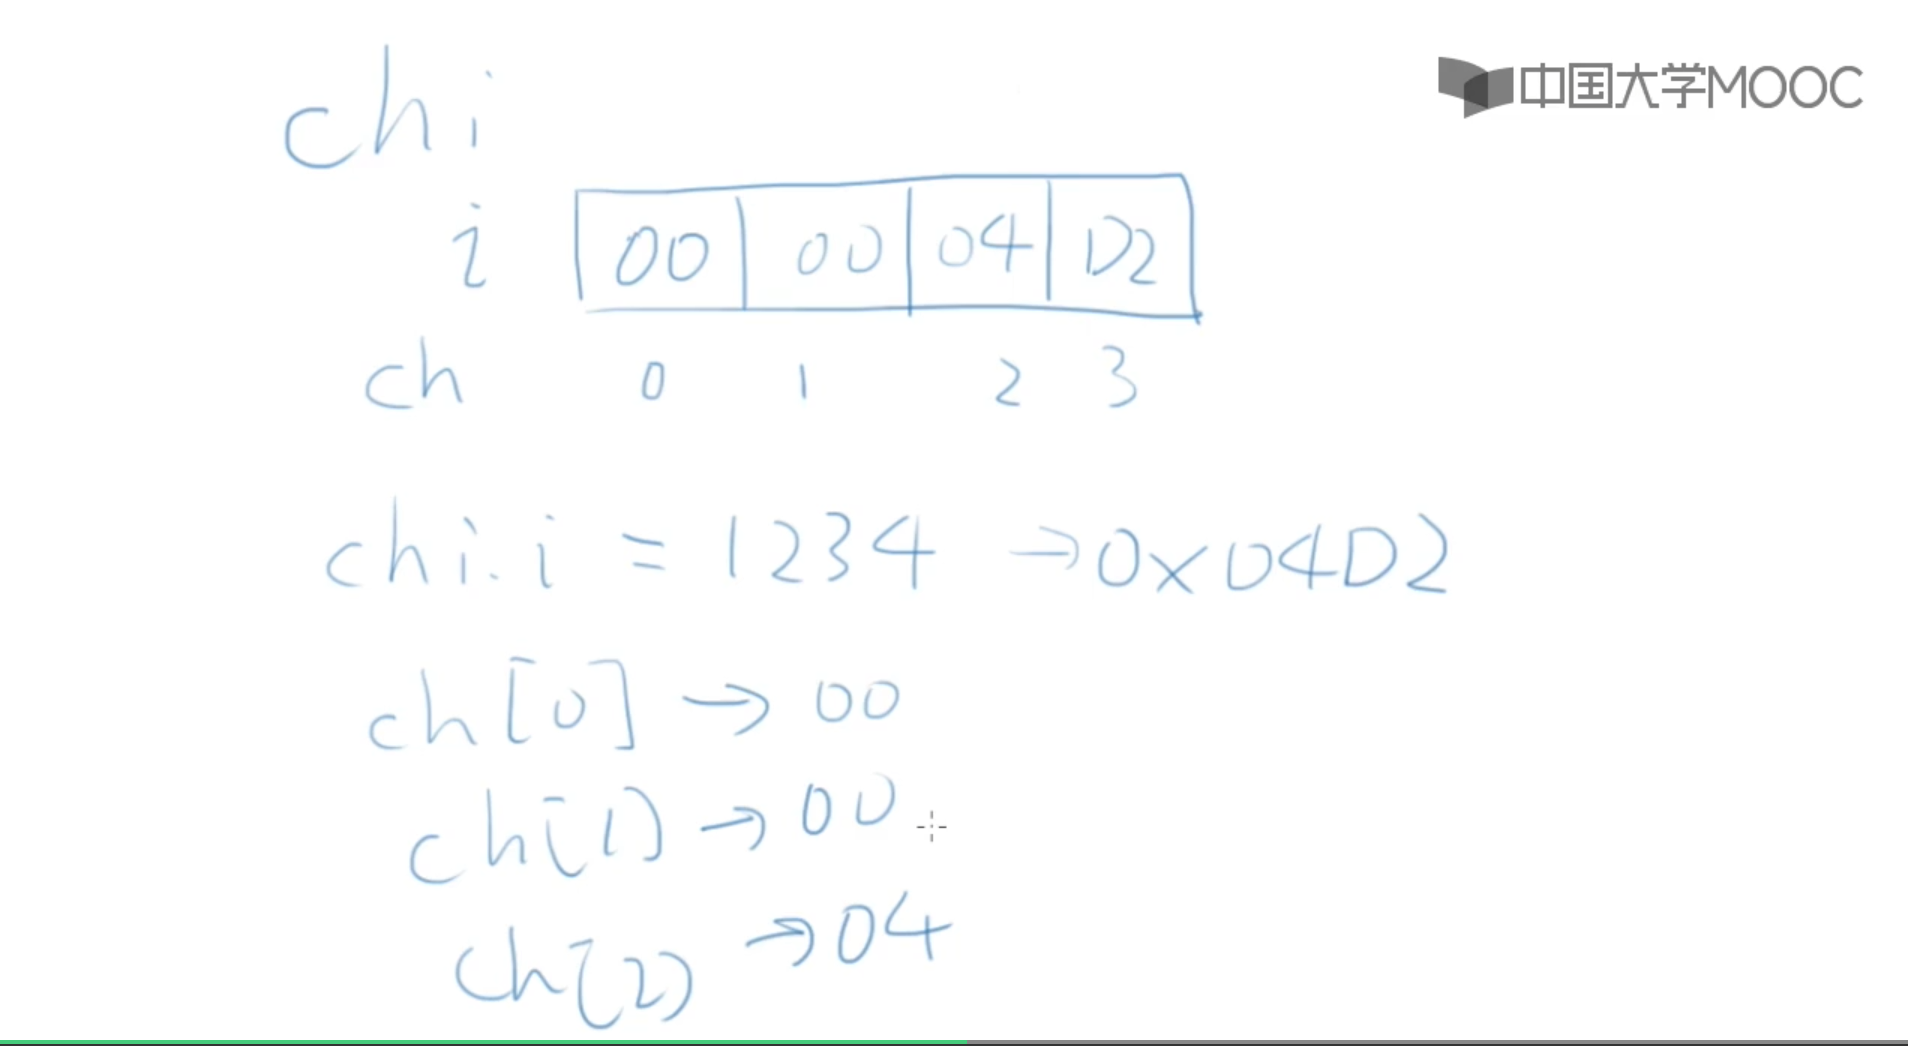 中国大学MOOC
chi
i 00 00 04 D2
ch 0 1 2 3
chi.i = 1234 → 0x04D2
ch[0] → 00
ch[1] → 00
ch[2] → 04